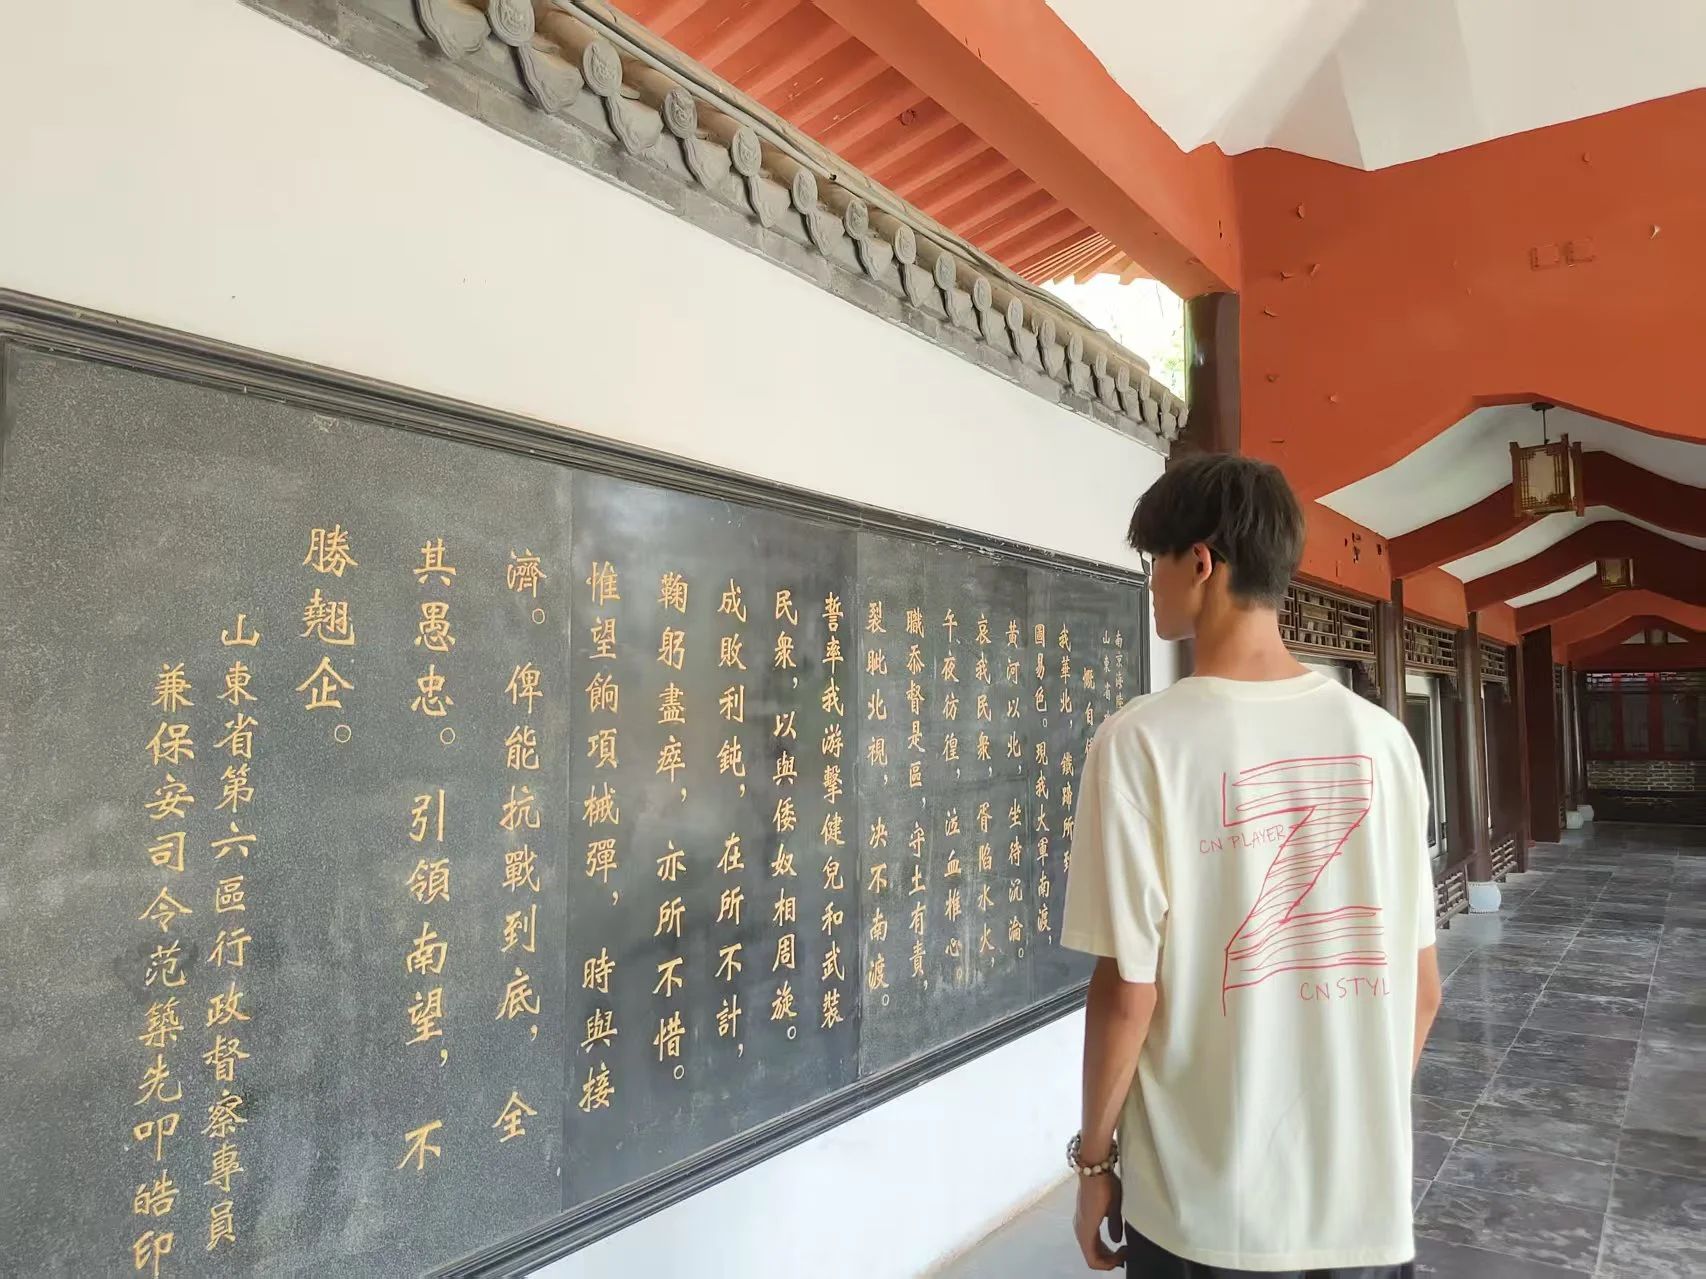 我華北，鐵蹄所到
圖易色。現我大軍南渡，
黃河以北，坐待沉淪。
哀我民衆，胥陷水火，
午夜彷徨，泣血椎心。
職忝督是區，守土有責，
裂眦北視，决不南渡。
誓率我游擊健兒和武裝
民衆，以與倭奴相周旋。
成敗利鈍，在所不計，
鞠躬盡瘁，亦所不惜。
惟望餉項械彈，時與接
濟。俾能抗戰到底，全
其愚忠。引領南望，不
勝翹企。
山東省第六區行政督察專員
兼保安司令范築先叩皓印
CN PLAYER
Z
CN STYL